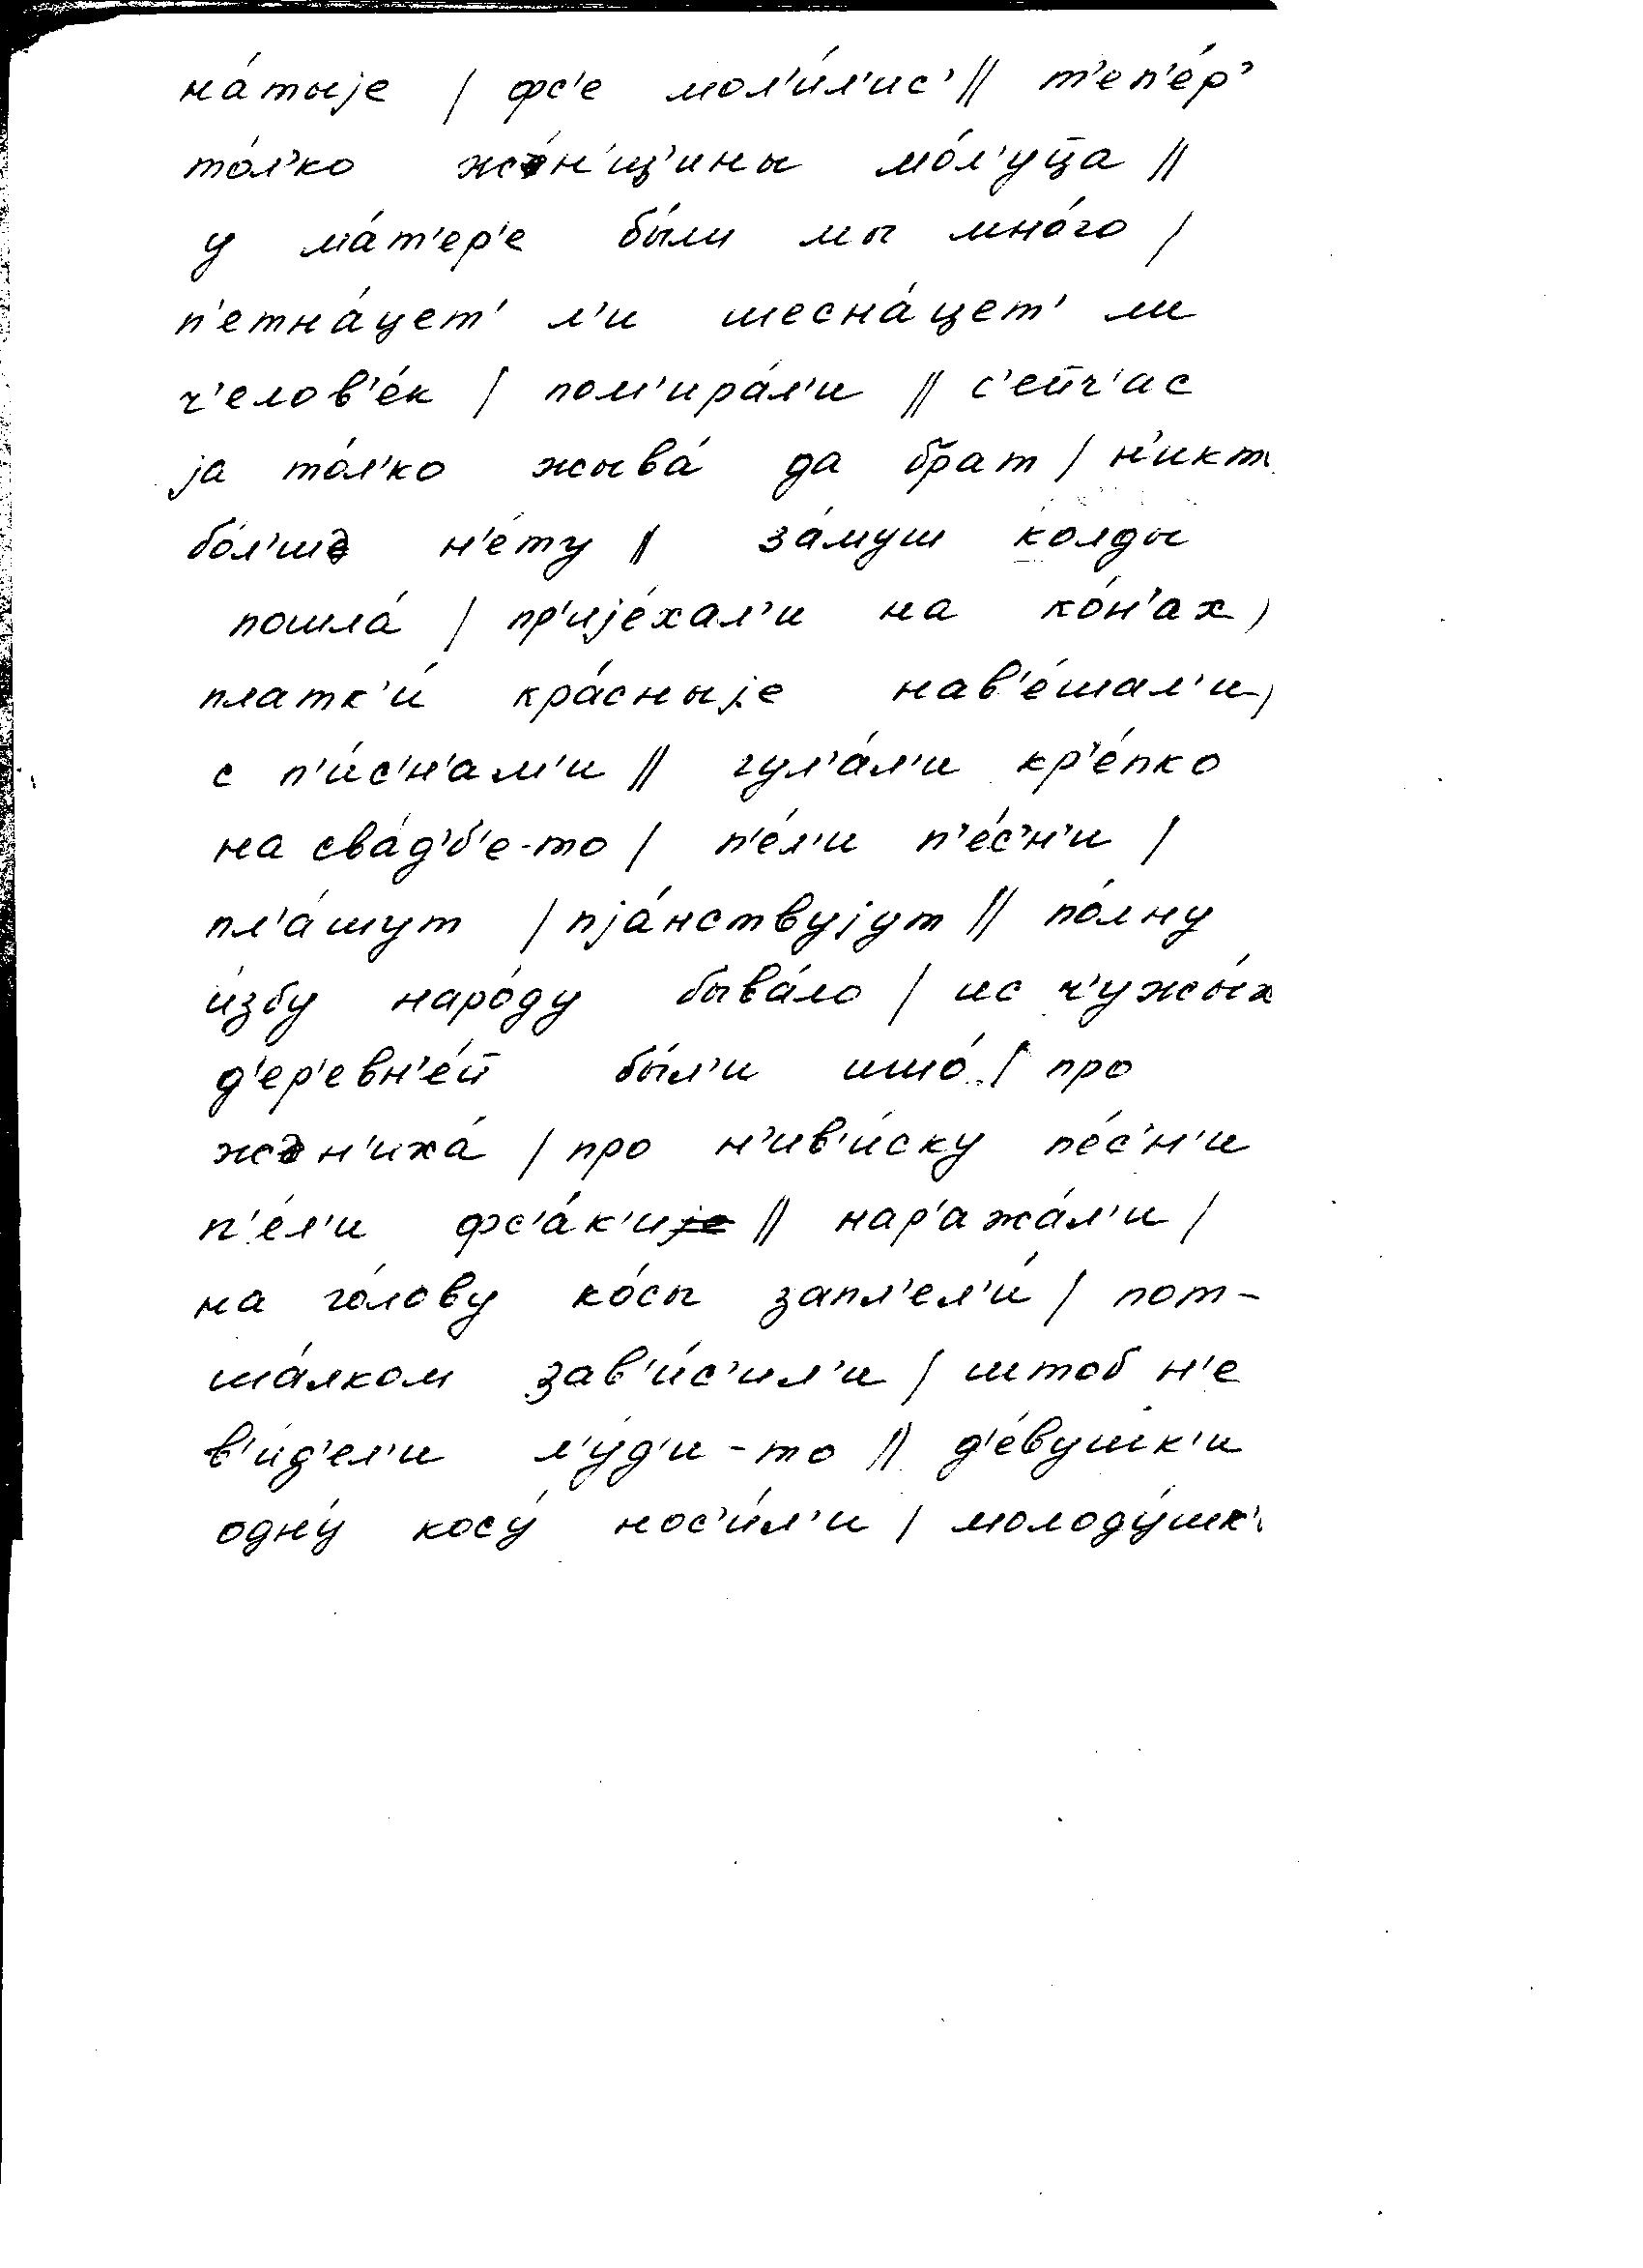 на́тыjе / фс'е мол'и́л'ис' // т'еп'е́р'
то́л'ко жэ́н'щ'ины мо́л'уц̄а //
у ма́т'ер'е бы́ли мы мно́го /
п'етна́цет' л'и шесна́цет' ли
ч'елов'е́к / пом'ира́л'и // с'ейч'ас
jа то́л'ко жыва́ да брат / н'икт
бо́л'шэ н'е́ту // за́муш колды
пошла́ / пр'иjе́хал'и на ко́н'ах /
платк'и́ кра́сныjе нав'е́шал'и /
с п'и́с'н'ам'и // гул'а́л'и кр'е́пко
на сва́д'б'е-то / п'е́л'и п'е́с'н'и /
пл'а́шут / пjа́нствуjут // по́лну
и́збу наро́ду быва́ло / ис ч'ужы́х
д'ер'евн'е́й бы́л'и ишо́ / про
жэн'иха́ / про н'ив'и́ску пе́с'н'и
п'е́л'и фс'а́к'иjе // нар'ажа́л'и /
на го́лову ко́сы запл'ел'и́ / пот-
ша́лком зав'и́с'ил'и / штоб н'е
в'и́д'ел'и л'у́д'и-то // д'е́вушк'и
одну́ косу́ нос'и́л'и / молоду́шк'и